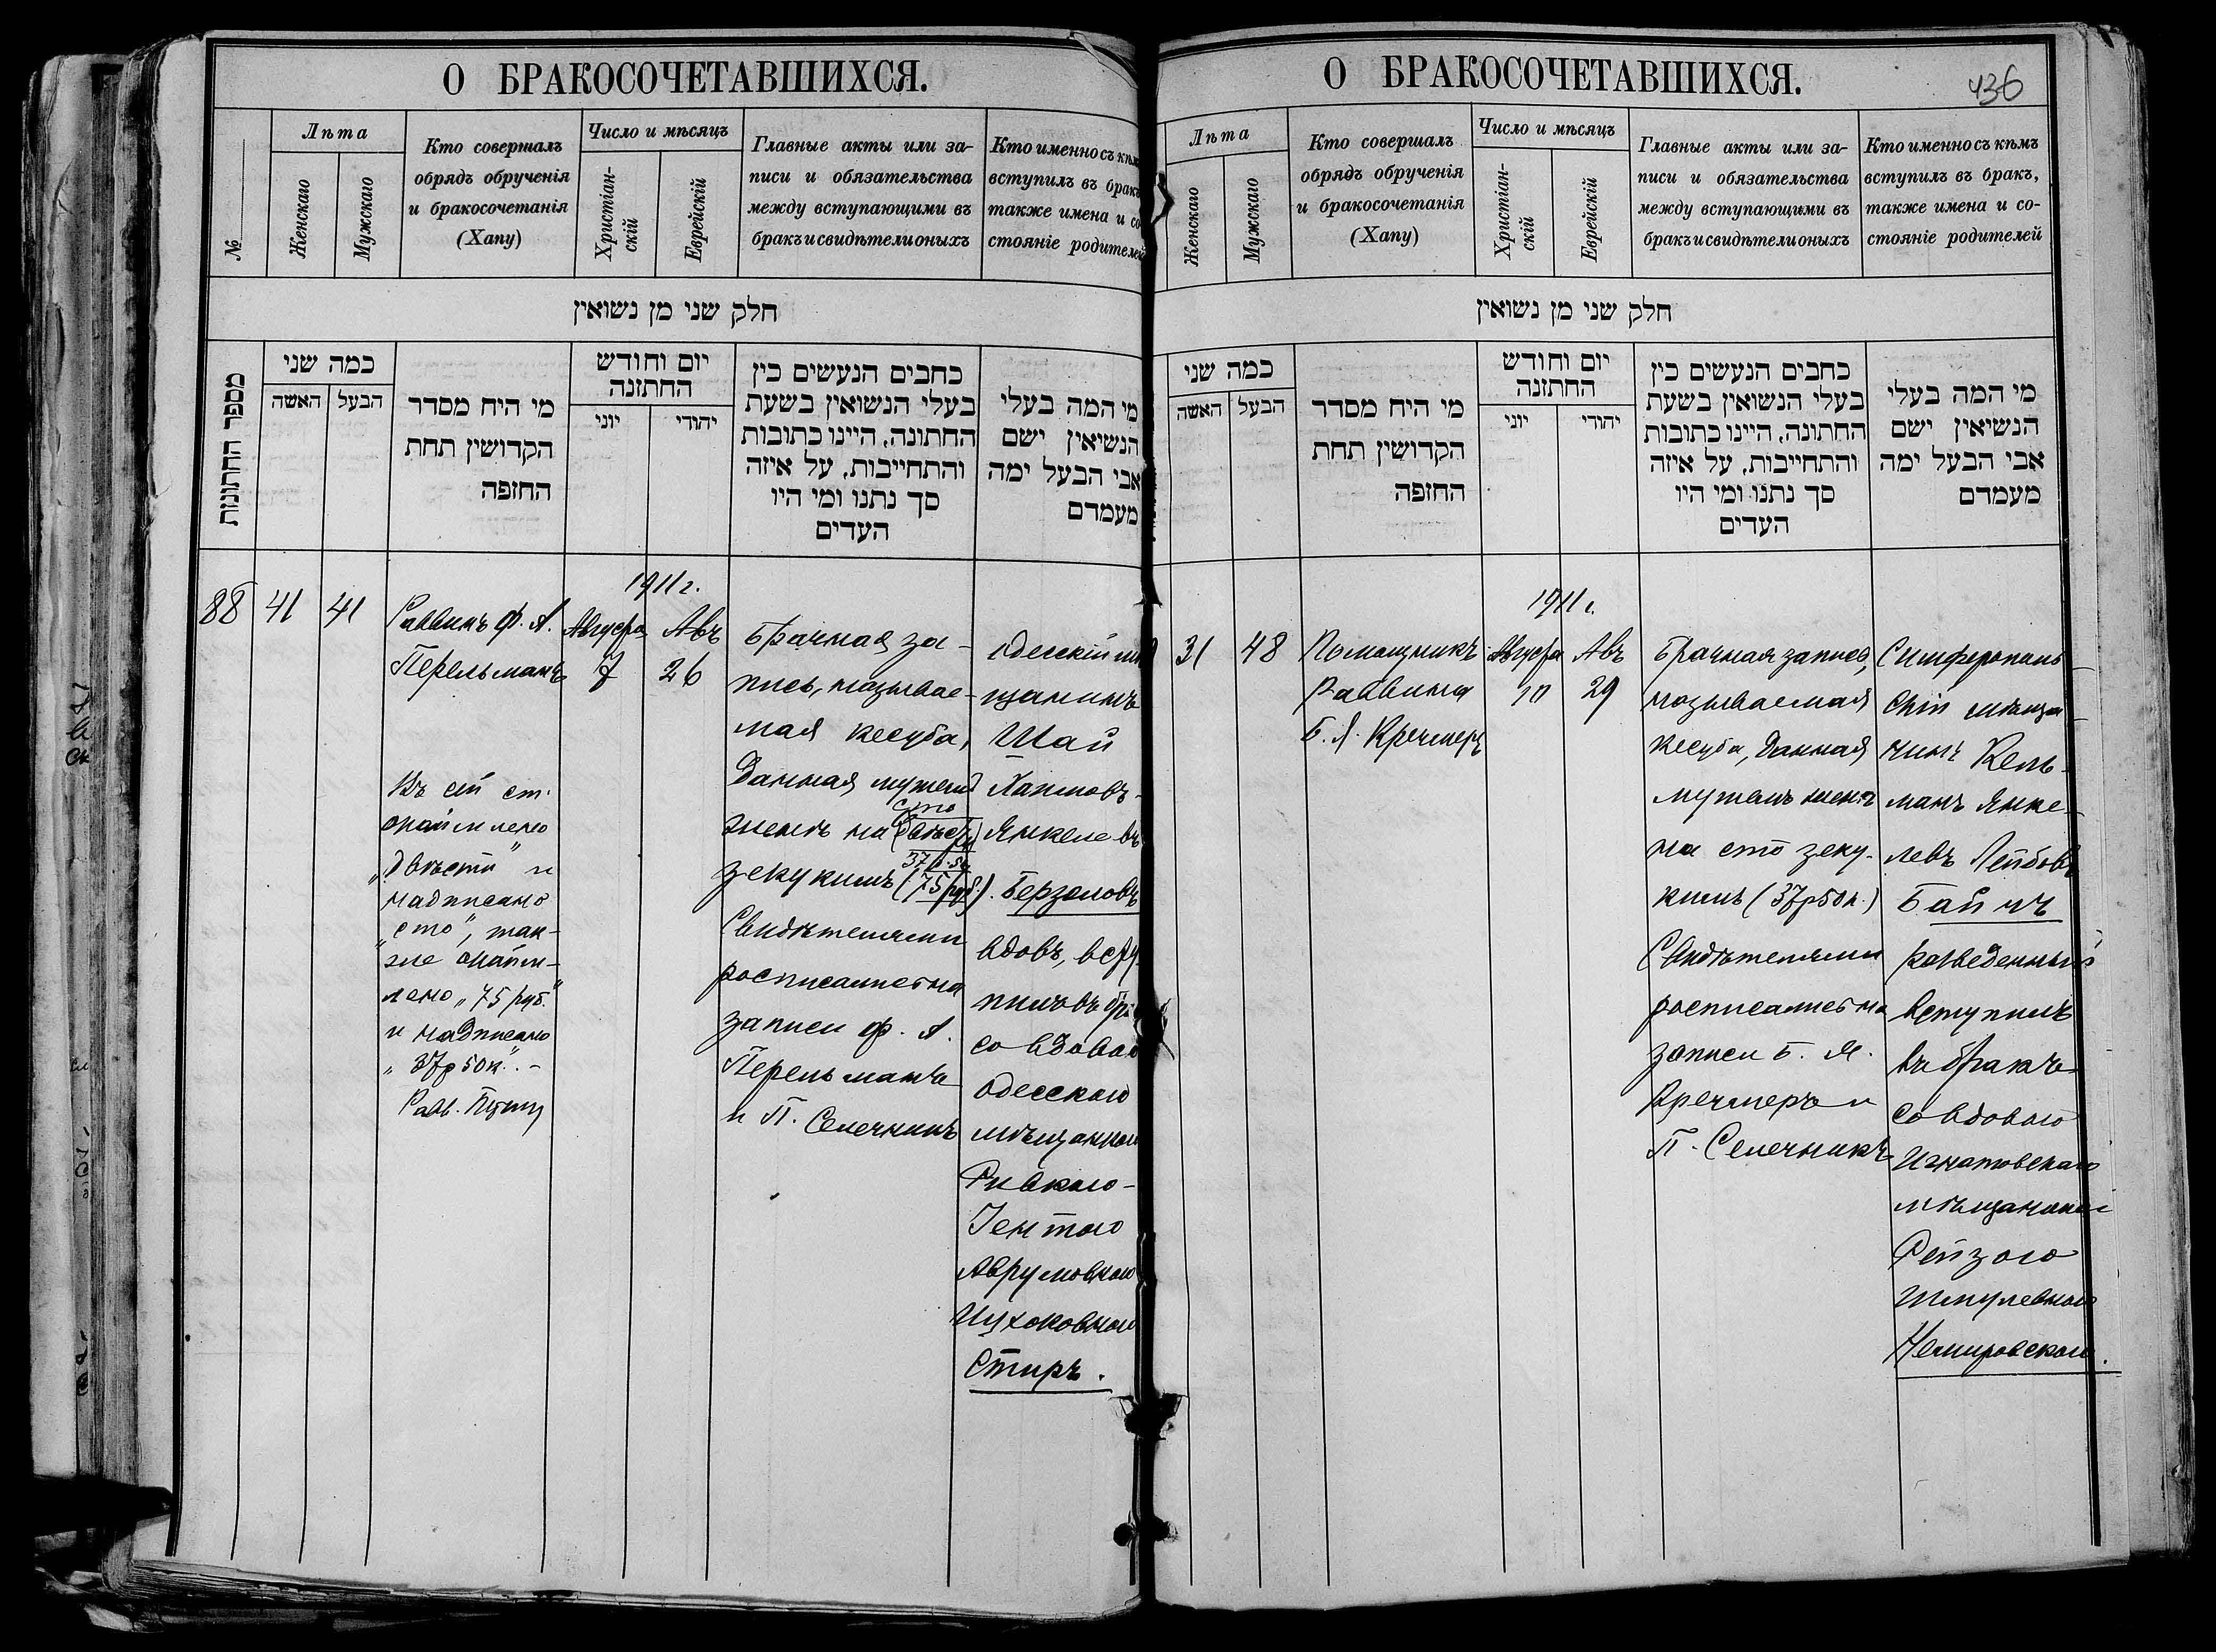 О БРАКОСОЧЕТАВШИХСЯ.
№
Лѣта
Женскаго
Мужскаго
Кто совершалъ
обрядъ обрученія
и бракосочетанія
(Хапу)
Число и мѣсяцъ
Христіан-
скій
Еврейскій
Главные акты или за-
писи и обязательства
между вступающими въ
бракъ и свидѣтели оныхъ
Кто именно съ кѣмъ
вступилъ въ бракъ
также имена и со-
стояніе родителей
חלק שני מן נשואין
מספר החתונות
כמה שני
האשה
הבעל
מי היח מסדר
הקדושין תחת
החזפה
יום וחודש
החתזנה
יוני
יהודי
כחבים הנעשים כין
בעלי הנשואין בשעת
החתונה, היינו כתובות
והתחייבות, על איזה
סך נתנו ומי היו
העדים
מי המה בעלי
הנשיאין ישם
אבי הבעל ימה
מעמדם
88
41
41
Раввинъ Ф. А.
Перельманъ
Къ сей ст.
„двѣсти" и
надписано
„сто", так-
же
лено „75 руб."
и надписано
„37р 50к". -
Равв.
1911 г.
Августа
7
Авъ
26
Брачная за-
пись, называе-
мая кесуба,
данная мужемъ
сто
женѣ на (двѣсти)
37р. 50
зекукимъ (75 руб.).
Свидѣтелями
росписались на
записи Ф. А.
Перельманъ
и П. Селечникъ
Одесскій мѣ
щанинъ
Шай
Янкелевъ
вдовъ, всту-
пилъ въ бра
со вдовою
одесскою
мѣщанкою
Ривкою-
Ентою
Аврумовною
Ицхоковною
Стиръ.
О БРАКОСОЧЕТАВШИХСЯ.
436
Лѣта
Женскаго
Мужскаго
Кто совершалъ
обрядъ обрученія
и бракосочетанія
(Хапу)
Число и мѣсяцъ
Христіан-
скій
Еврейскій
Главные акты или за-
писи и обязательства
между вступающими въ
бракъ и свидѣтели оныхъ
Кто именно съ кѣмъ
вступилъ въ бракъ,
также имена и со-
стояніе родителей
חלק שני מן נשואין
כמה שני
האשה
הבעל
מי היח מסדר
הקדושין תחת
החזפה
יום וחודש
החתזנה
יוני
יהודי
כחבים הנעשים כין
בעלי הנשואין בשעת
החתונה, היינו כתובות
והתחייבות, על איזה
סך נתנו ומי היו
העדים
מי המה בעלי
הנשיאין ישם
אבי הבעל ימה
מעמדם
31
48
Помощникъ
Раввина
Б. Я. Кречмеръ
1911 г.
Августа
10
Авъ
29
Брачная запись,
называемая
кесуба, данная
мужемъ женѣ
на сто зеку-
кимъ (37р50к.)
Свидѣтелями
росписались на
записи Б. Я.
Кречмеръ и
П. Селечникъ
Симферополь-
скій мѣща-
нинъ Кель-
манъ Янке-
левъ Лейбовъ
разведенный
вступилъ
въ бракъ
со вдовою
Игнатовскою
мѣщанкою
Рейзою
Шмулевною
Немировскою.